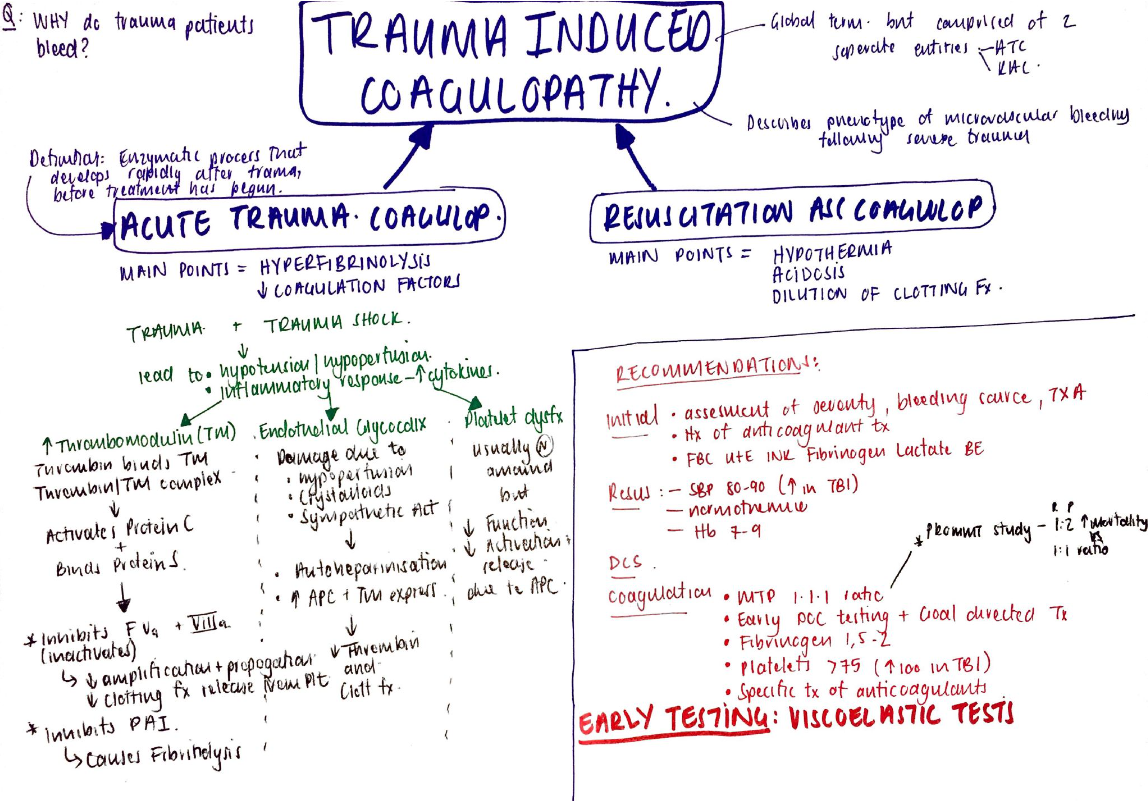 Q: WHY do trauma patients
bleed?
TRAUMA INDUCED
COAGULOPATHY.
Global term. but comprised of 2
seperate entities - ATC
RAC.
Describes phenotype of microvascular bleeding
following severe trauma
Definition: Enzymatic process that
develops rapidly after trama,
before treatment has begun.
ACUTE TRAUMA. COAGULOP.
MAIN POINTS = HYPERFIBRINOLYSIS
↓ COAGULATION FACTORS
RESUSCITATION ASC COAGULOP
MAIN POINTS = HYPOTHERMIA
ACIDOSIS
DILUTION OF CLOTTING Fx.
TRAUMA + TRAUMA SHOCK.
↓
lead to • hypotension/hypoperfusion.
• inflammatory response - ↑ cytokines.
↑ Thrombomodulin (TM)
Thrombin binds TM
Thrombin/TM complex
↓
Activates Protein C
+
Binds Protein S.
↓
* Inhibits F Va + VIIIa
(inactivates)
↳ ↓ amplification + propogation
↓ clotting fx release from Plt
* Inhibits PAI.
↳ Causes Fibrinolysis
• Endothelial Glycocalix
• Damage due to
• hypoperfusion
• Crystalloids
• Sympathetic Act
↓
• Autoheparinisation
• ↑ APC + TM express.
↓
↓ Thrombin
and
Clott fx.
• Platelet dysfx
usually N
amount
but
↓ Function
↓ Activation +
release
due to APC.
RECOMMENDATIONS:
Initial • assesment of severity, bleeding source, TXA
• Hx of anticoagulant tx
• FBC U+E INR Fibrinogen Lactate BE
Resus: - SBP 80-90 (↑ in TBI)
- normothermic
- Hb 7-9
DCS
* PROMMT study - 1:2 ↑ Mortality
R P
vs
1:1 ratio
Coagulation • MTP 1:1:1 ratio
• Early POC testing + Goal directed Tx
• Fibrinogen 1,5-2
• Platelets >75 (↑100 in TBI)
• Specific tx of anticoagulants
EARLY TESTING: VISCOELASTIC TESTS